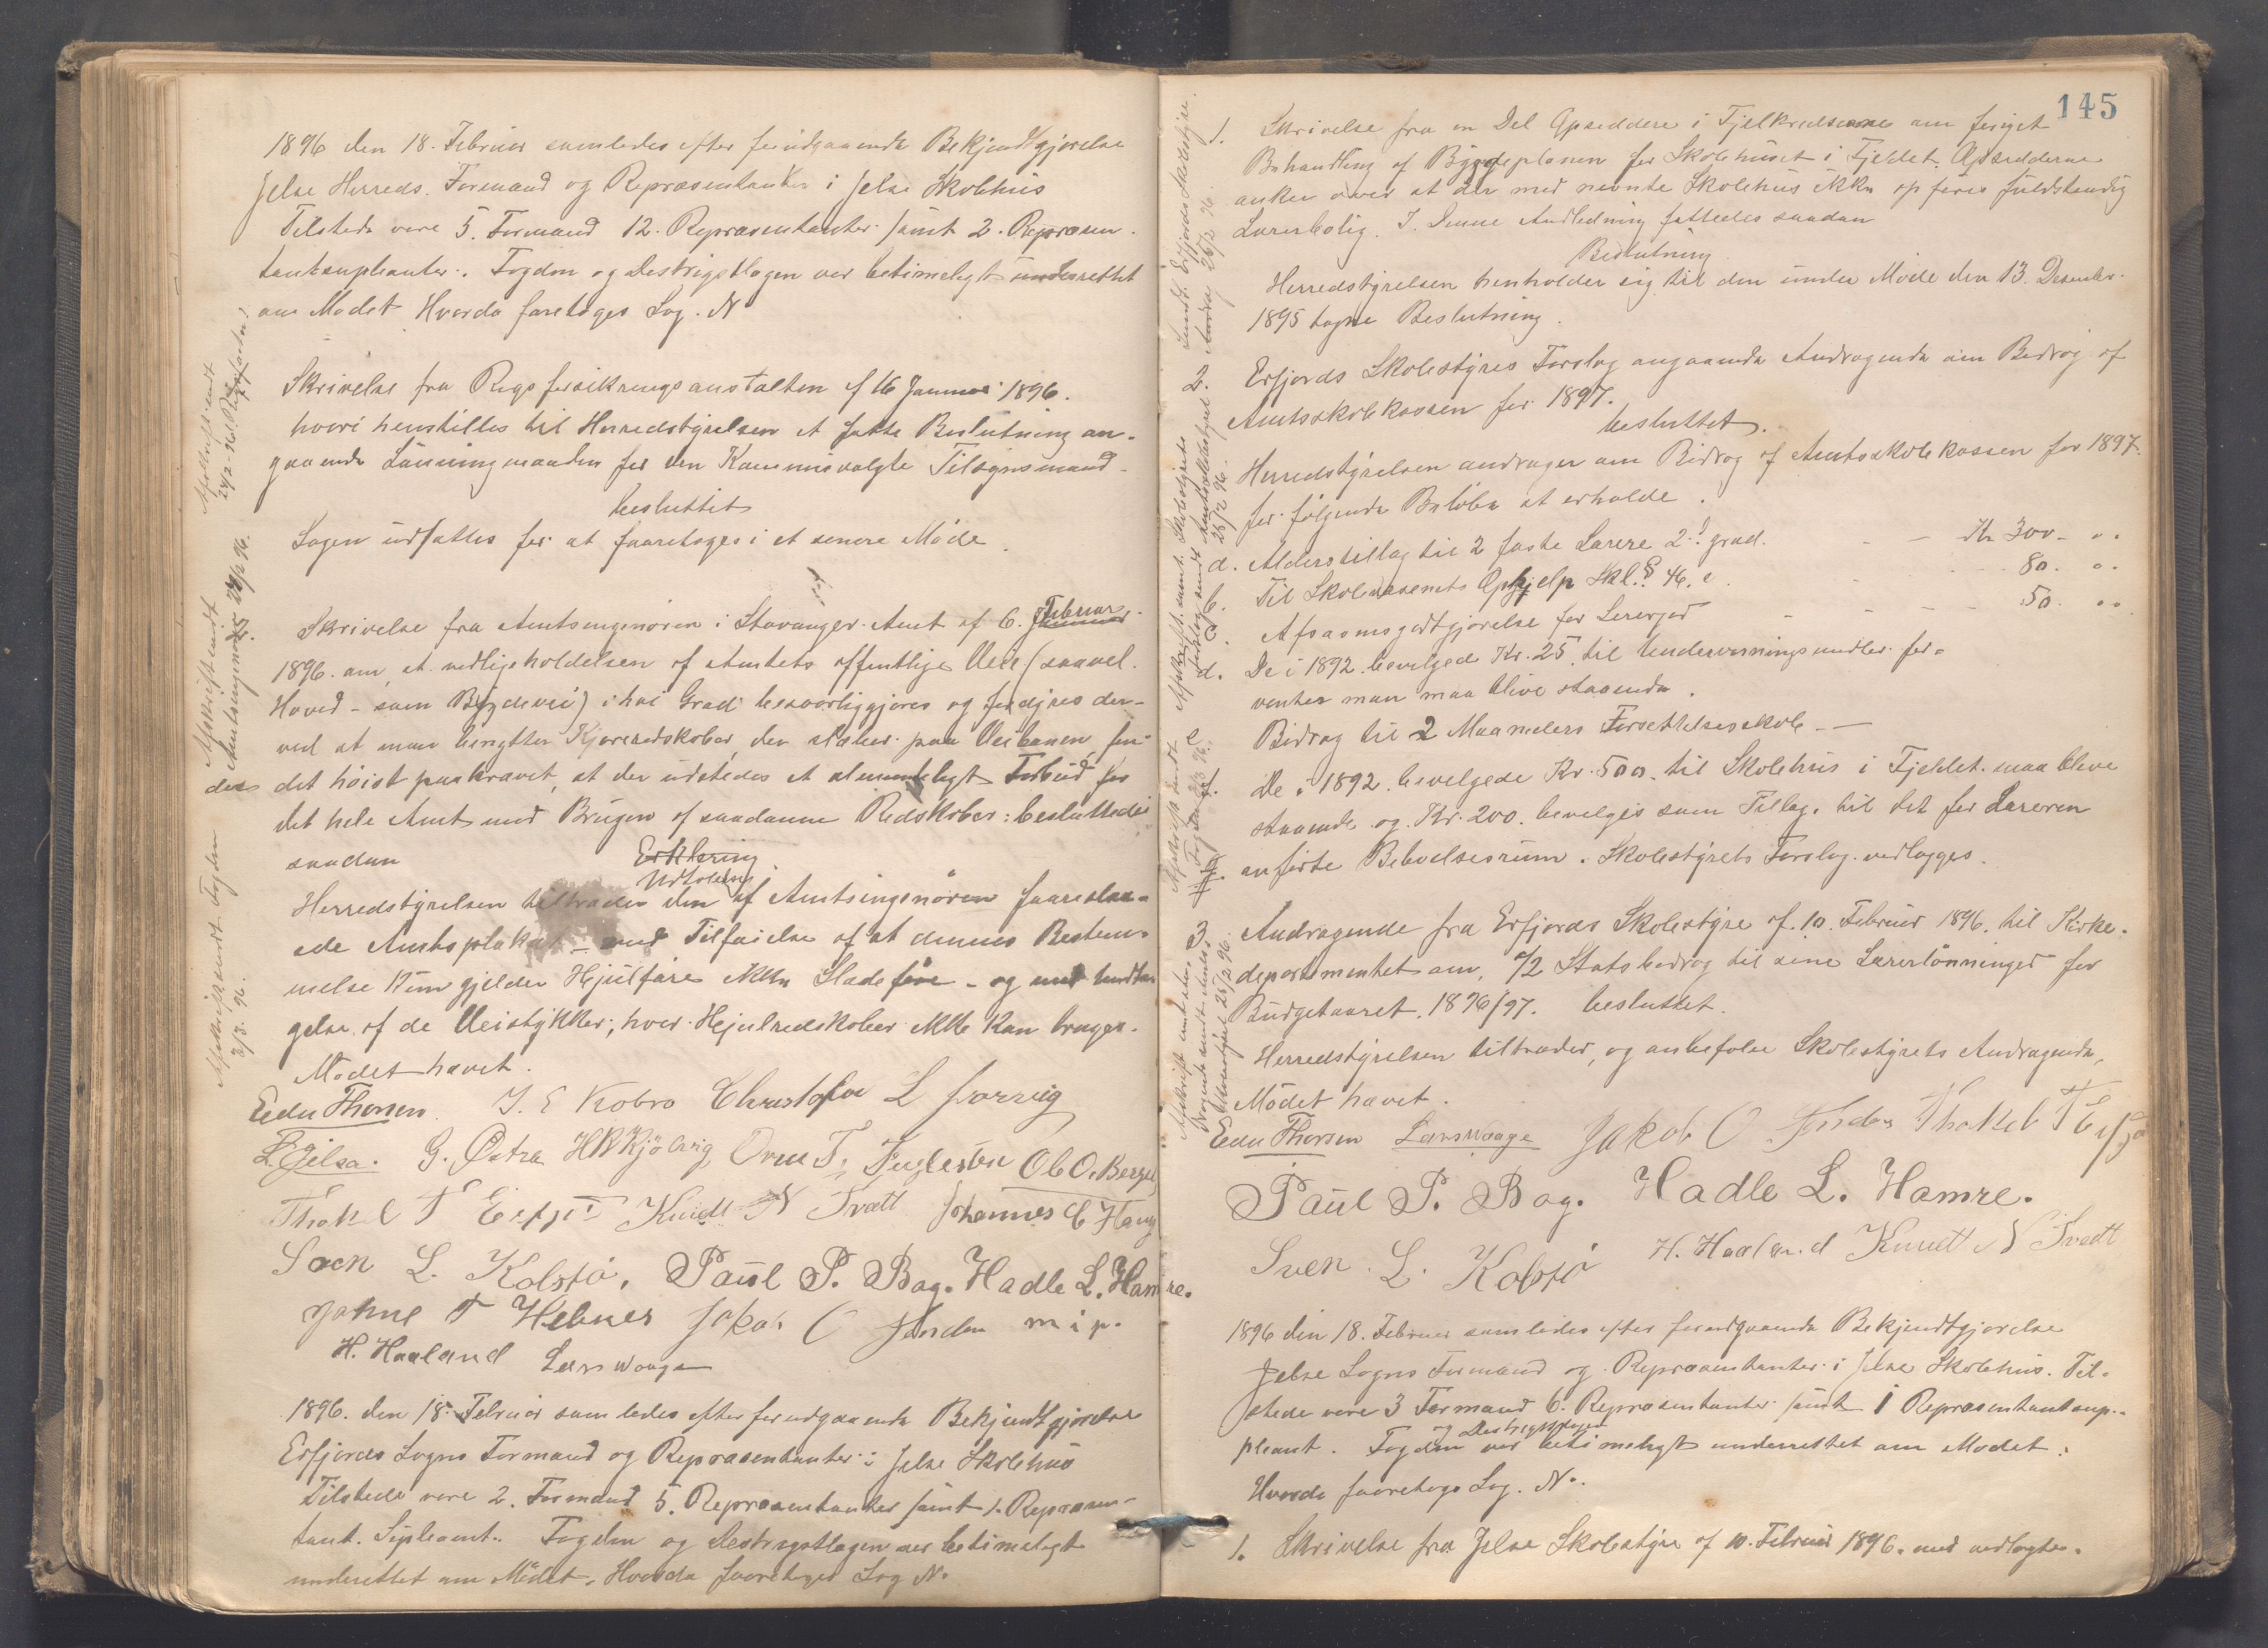 1896 den 18. Februar samledes efter forudgaaende Bekjendtgjørelse
Jelse Herreds Formænd og Repræsentanter i Jelse Skolehus
Tilstede vare 5. Formænd 12. Repræsentanter samt 2. Repræsen-
tantsupleanter. Fogden og Lægen var betimeligt underrettet
om Mødet Hvorda foretoges Sag. N
Skrivelse fra Rigsforsikringsanstalten af 16 Januar 1896.
hvori henstilles til Herredstyrelsen at fatte Beslutning an-
gaaende Lønningmaaden for den Kommunevalgte Tilsynsmand
besluttet
Sagen udsattes for at foaretages i et senere Møde.
Skrivelse fra Amtsingeniøren i Stavanger Amt af 6. Februar
1896. om, at vedligeholdelsen af Amtets offentlige Veie (saavel
Hoved- som Bygdevei) i høi Grad besværliggjøres og fordyres der-
ved at man benytter Kjøreredskaber, der slæber paa Veibanen, fin-
des det høist paakrævet, at der udstedes et almindeligt Forbud for
det hele Amt mod Brugen af saadanne Redskaber: besluttedes
saadan Erklæring.
Udtalelse
Herredstyrelsen tiltræder den af Amtsingeniøren foareslaa-
ede Amtsplakat – med Tilføielse af at dennes Bestem-
melse kun gjelder Hjulføre ikke Sladeføre – og med Undta-
gelse af de Veistykker, hvor Hjulredskaber ikke kan bruges.
Mødet hævet.
Edu Thorsen. J. E Kobro Christofer L
L Gjelsa. G. Østra H R Kjølvig Orm T. Fuglesten Ole O. Berge
Thorkel T Erfj Knudt N Tvedt Johannes C Haug
Sven L. Kolstø. Paul P. Bag. Hadle L. Hamre.
T Hebnes Jakob O m i p.
H. Haaland Lars Waage
1896. den 18. Februar samledes efter forudgaaende Bekjendtgjørelse
Erfjords Sogns Formænd og Repræsentanter i Jelse Skolehus
Tilstede vare 2. Formænd 5. Repræsentanter samt 1. Repræsen-
tant. Supleant. Fogden og Lægen var betimeligt
underettet om Mødet. Hvorda foaretoges Sag N.
Afskrift sendt Fogden 3/3 96.
Afskrift sendt Amtsingeniør 28/2 96.
Afskrift sendt 24/2 96.
145
1. Skrivelse fra en Del Opsiddere i Fjelkredsene om fornyet
Behandling af Byggeplanen for Skolehuset i Fjeldet. Opsidderne
anker over at der med nevnte Skolehus ikke opføres fuldstændig
Lærerbolig. I Denne Andledning fattedes saadan
Beslutning
Herredstyrelsen henholder sig til den under Møde den 13. Desember
1895 tagne Beslutning.
2. Erfjords Skolestyres Forslag angaaende Andragende om Bidrag af
Amtsskolekassen for 1897.
besluttet.
Herredstyrelsen andrager om Bidrag af Amtsskolekassen for 1897.
for følgende Beløbe at erholde.
a. Alderstillæg til 2 faste Lærere 2. grad. - - Kr 300 - „.
b. Til Skolevæsenets Ophjelp Skl. § 46. e. - - 80. „.
c. Afsavnsgodtgjørelse for Lærerjord - - - 50. „.
d. De i 1892 bevilgede Kr. 25 til Undervisningsmidler for-
venter man maa blive staaende.
e. Bidrag til 2 Maaneders Forsettelsesskole –
f. De i 1892. bevelgede Kr. 500. til Skolehus i Fjeldet. maa blive
staaende og. Kr. 200. bevelges som Tillæg. til det for Læreren
anførte Bekvelsesrum. Skolestyrets Forslag vedlægges.
3 Andragende fra Erfjords Skolestyre af 10. Februar 1896. til Kirke-
departementet om, 1/2 Statsbidrag til sine Lærerlønninger for
Budgetaaret. 1896/97. besluttet.
Herredstyrelsen tiltræder, og anbefaler Skolestyrets Andragende.
Mødet hævet.
Edu Thorsen Lars Waage Jakob O Thorkel T Erfj
Paul P. Bag. Hadle L. Hamre.
Sven L. Kolstø H. Haaland Knudt N Tvedt
1896 din 18. Februar samledes efter forudgaaende Bekjendtgjørelse
Jelse Sogns Formænd og Repræsentanter i Jelse Skolehus. Til-
stede vare 3 Formænd 6. Repræsentanter samt 1 Repræsentantsup-
pleant. Fogden var betimeligt underrettet om Mødet.
Hvorda foaretoges Sag. N.
1. Skrivelse fra Jelse Skolestyre af 10. Februar 1896. med vedlagte